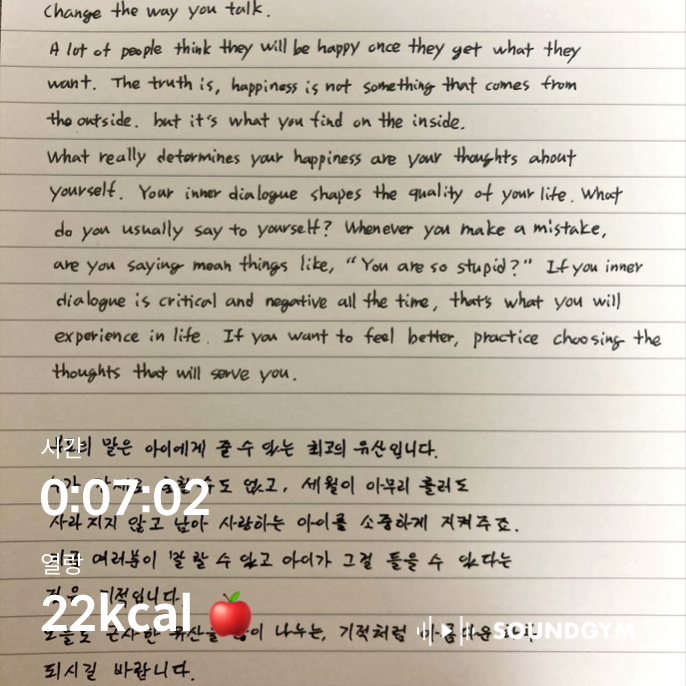 Change the way you talk.
A lot of people think they will be happy once they get what they
want. The truth is, happiness is not something that comes from
the outside. but it's what you find on the inside.
What really determines your happiness are your thoughts about
yourself. Your inner dialogue shapes the quality of your life. What
do you usually say to yourself? Whenever you make a mistake,
are you saying mean things like, “You are so stupid?” If you inner
dialogue is critical and negative all the time, that's what you will
experience in life. If you want to feel better, practice choosing the
thoughts that will serve you.
시간
말은 아이에게 줄 수 있는 최고의 유산입니다.
도 없고, 세월이 아무리 흘러도
0:07:02
사라지지 않고 남아 사랑하는 아이를 소중하게 지켜주죠.
열량
여러분이 말할 수 있고 아이가 그걸 들을 수 있다는
기적입니다
22kcal
나누는, 기적처럼
SOUNDGYM
되시길 바랍니다.